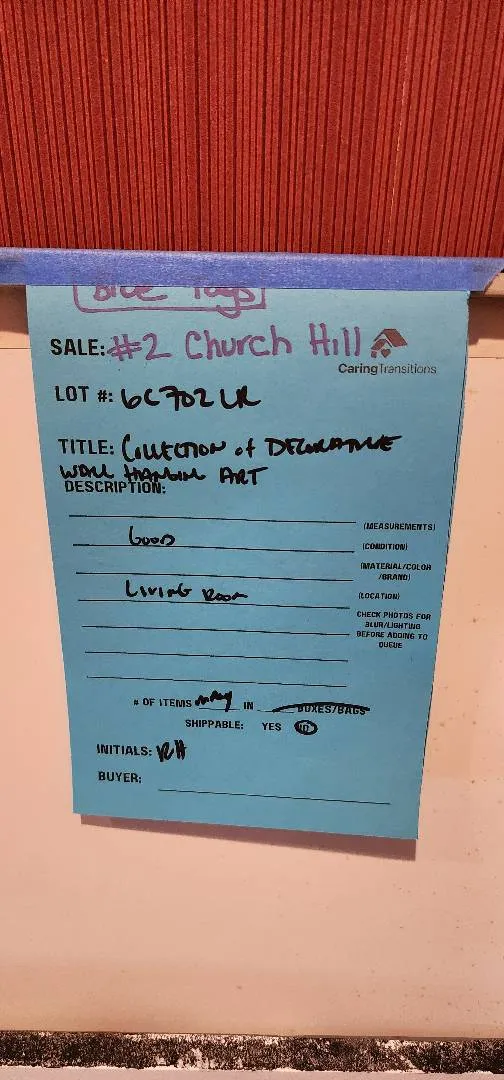 Blue Tags
SALE: #2 Church Hill
CaringTransitions
LOT #: 6C702 LR
TITLE: COLLECTION of DECORATIVE
WALL HANGING ART
DESCRIPTION:
(MEASUREMENTS)
GOOD (CONDITION)
(MATERIAL/COLOR
/BRAND)
LIVING ROOM (LOCATION)
CHECK PHOTOS FOR
BLUR/LIGHTING
BEFORE ADDING TO
QUEUE
# OF ITEMS MANY IN BOXES/BAGS
SHIPPABLE: YES NO
INITIALS: RH
BUYER: